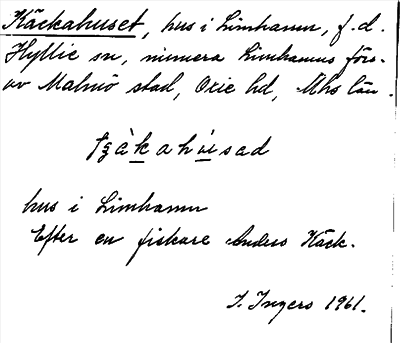 Käckahuset, hus i Limhamn, f.d.
Hyllie sn, numera Limhamns förs.
av Malmö stad, Oxie hd, Mhs län.
hus i Limhamn
Efter en fiskare Anders Käck.
I. Ingers 1961.